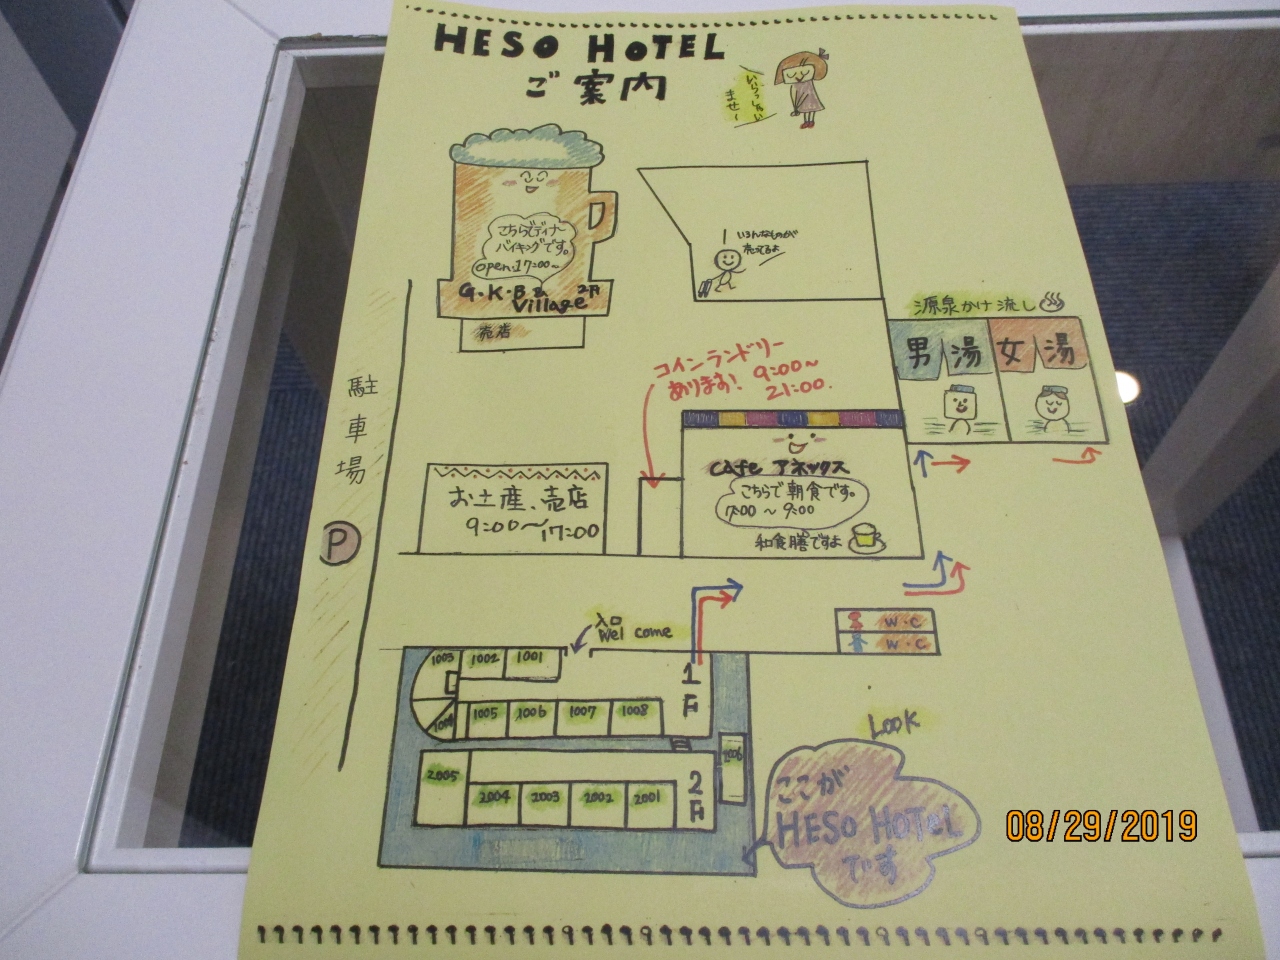 HESO HOTEL
ご案内
いらっしゃい
ませ〜
こちらでディナー
バイキングです。
open.17:00〜
G.K.B & 2F
Village
売店
いろんなものが
売ってるよ
源泉かけ流し
男湯 女湯
コインランドリー
あります! 9:00〜
21:00.
駐車場
P
お土産、売店
9:00〜17:00
cafe アネックス
こちらで朝食です。
7:00〜9:00
和食膳ですよ
入口
Wel come
W.C
W.C
1003 1002 1001
1F
1004 1005 1006 1007 1008
2005
2006
2F
2004 2003 2002 2001
Look
ここが
HESO HOTEL
です
08/29/2019